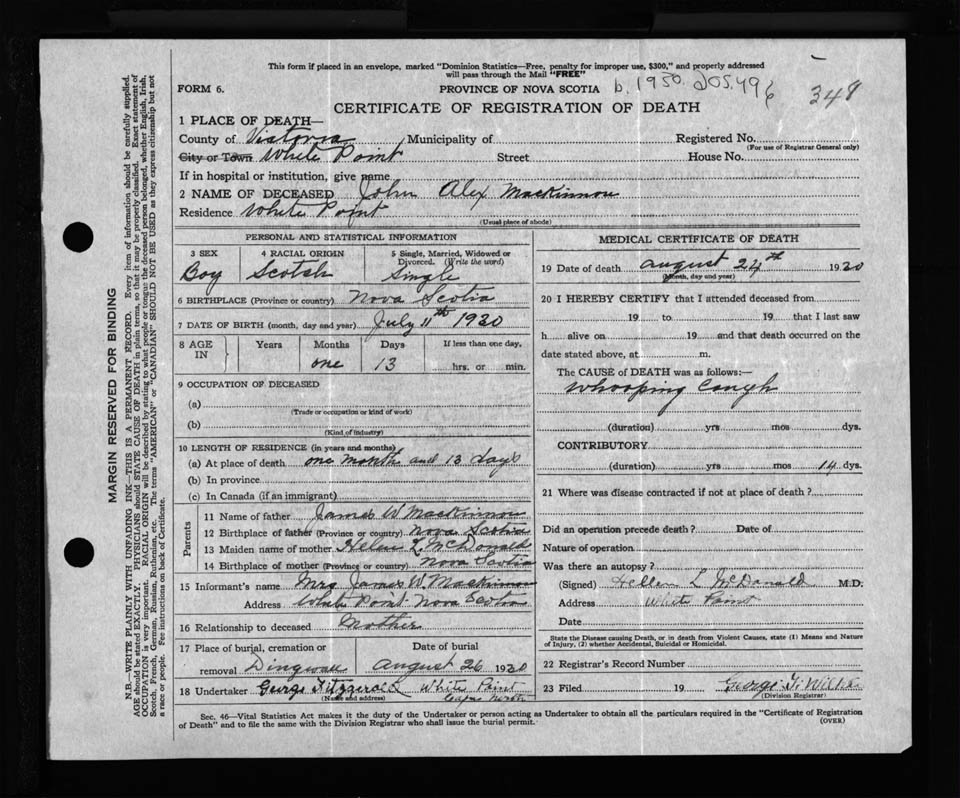 This form if placed in an envelope, marked "Dominion Statistics—Free, penalty for improper use, $300," and properly addressed
will pass through the Mail "FREE"
FORM 6.
PROVINCE OF NOVA SCOTIA
b. 1930. 348
CERTIFICATE OF REGISTRATION OF DEATH
1 PLACE OF DEATH—
County of Victoria Municipality of Registered No.
(For use of Registrar General only)
City or Town White Point Street House No.
If in hospital or institution, give name
2 NAME OF DECEASED John Alex Mackinnon
Residence White Point
(Usual place of abode)
PERSONAL AND STATISTICAL INFORMATION
3 SEX 4 RACIAL ORIGIN 5 Single, Married, Widowed or
Divorced. (Write the word)
Boy Scotch Single
6 BIRTHPLACE (Province or country) Nova Scotia
7 DATE OF BIRTH (month, day and year) July 11th 1930
8 AGE IN Years Months Days If less than one day,
one 13 hrs. or min.
9 OCCUPATION OF DECEASED
(a)
(Trade or occupation or kind of work)
(b)
(Kind of industry)
10 LENGTH OF RESIDENCE (in years and months)
(a) At place of death one month and 13 days
(b) In province
(c) In Canada (if an immigrant)
Parents
11 Name of father James W Mackinnon
12 Birthplace of father (Province or country) Nova Scotia
13 Maiden name of mother Helen L McDonald
14 Birthplace of mother (Province or country) Nova Scotia
15 Informant's name Mrs James W Mackinnon
Address White Point Nova Scotia
16 Relationship to deceased Mother
17 Place of burial, cremation or Date of burial
removal Dingwall August 26 1930
18 Undertaker George Fitzgerald White Point
(Name and address) Cape North
MEDICAL CERTIFICATE OF DEATH
19 Date of death August 24th 1930
(Month, day and year)
20 I HEREBY CERTIFY that I attended deceased from
19 to 19 that I last saw
h alive on 19 and that death occurred on the
date stated above, at m.
The CAUSE of DEATH was as follows:—
Whooping Cough
(duration) yrs mos dys.
CONTRIBUTORY
(duration) yrs mos 14 dys.
21 Where was disease contracted if not at place of death?
Did an operation precede death? Date of
Nature of operation
Was there an autopsy?
(Signed) Hellen L McDonald M.D.
Address White Point
Date
State the Disease causing Death, or in death from Violent Causes, state (1) Means and Nature
of Injury, (2) whether Accidental, Suicidal or Homicidal.
22 Registrar's Record Number
23 Filed 19 George
(Division Registrar)
Sec. 46—Vital Statistics Act makes it the duty of the Undertaker or person acting as Undertaker to obtain all the particulars required in the "Certificate of Registration
of Death" and to file the same with the Division Registrar who shall issue the burial permit. (OVER)
MARGIN RESERVED FOR BINDING
N.B.—WRITE PLAINLY WITH UNFADING INK—THIS IS A PERMANENT RECORD. Every item of information should be carefully supplied.
AGE should be stated EXACTLY. PHYSICIANS should STATE CAUSE OF DEATH in plain terms, so that it may be properly classified. Exact statement of
OCCUPATION is very important. RACIAL ORIGIN will be described by stating to what people or tongue the deceased person belonged, whether English, Irish,
Scotch, French, German, Russian, Ruthenian, etc. The terms "AMERICAN" or "CANADIAN" SHOULD NOT BE USED as they express citizenship but not
a race or people. Fee instructions on back of Certificate.